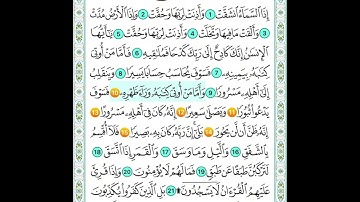 إِذَا ٱلسَّمَآءُ ٱنشَقَّتْ ١ وَأَذِنَتْ لِرَبِّهَا وَحُقَّتْ ٢ وَإِذَا ٱلْأَرْضُ مُدَّتْ
٣ وَأَلْقَتْ مَا فِيهَا وَتَخَلَّتْ ٤ وَأَذِنَتْ لِرَبِّهَا وَحُقَّتْ ٥ يَٰٓأَيُّهَا
ٱلْإِنسَٰنُ إِنَّكَ كَادِحٌ إِلَىٰ رَبِّكَ كَدْحًا فَمُلَٰقِيهِ ٦ فَأَمَّا مَنْ أُوتِىَ
كِتَٰبَهُۥ بِيَمِينِهِۦ ٧ فَسَوْفَ يُحَاسَبُ حِسَابًا يَسِيرًا ٨ وَيَنقَلِبُ
إِلَىٰٓ أَهْلِهِۦ مَسْرُورًا ٩ وَأَمَّا مَنْ أُوتِىَ كِتَٰبَهُۥ وَرَآءَ ظَهْرِهِۦ ١٠ فَسَوْفَ
يَدْعُوا۟ ثُبُورًا ١١ وَيَصْلَىٰ سَعِيرًا ١٢ إِنَّهُۥ كَانَ فِىٓ أَهْلِهِۦ مَسْرُورًا ١٣
إِنَّهُۥ ظَنَّ أَن لَّن يَحُورَ ١٤ بَلَىٰٓ إِنَّ رَبَّهُۥ كَانَ بِهِۦ بَصِيرًا ١٥ فَلَآ أُقْسِمُ
بِٱلشَّفَقِ ١٦ وَٱلَّيْلِ وَمَا وَسَقَ ١٧ وَٱلْقَمَرِ إِذَا ٱتَّسَقَ ١٨
لَتَرْكَبُنَّ طَبَقًا عَن طَبَقٍ ١٩ فَمَا لَهُمْ لَا يُؤْمِنُونَ ٢٠ وَإِذَا قُرِئَ
عَلَيْهِمُ ٱلْقُرْءَانُ لَا يَسْجُدُونَ ۩ ٢١ بَلِ ٱلَّذِينَ كَفَرُوا۟ يُكَذِّبُونَ